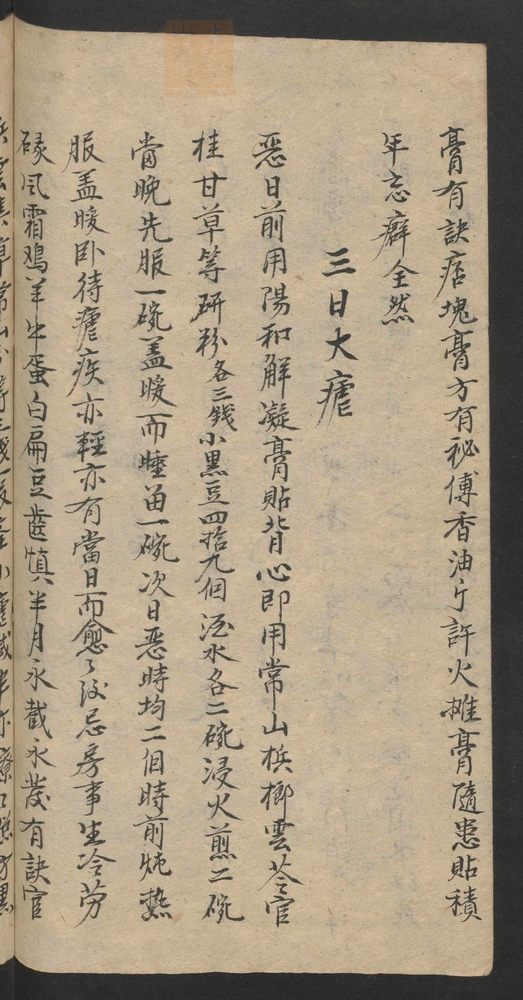 膏有訣痞塊膏方有秘傳香油斤許火攤膏隨患貼積
年忘癖全然
三日大瘧
惡日前用陽和解凝膏貼背心即用常山檳榔雲苓官
桂甘草等研粉各三錢小黑豆四拾九個酒水各二碗浸火煎二碗
當晚先服一碗盖暖而睡留一碗次日惡時均二個時前炖熱
服盖暖卧待瘧疾亦輕亦有當日而愈了後忌房事生冷劳
碌风霜鳮羊牛蛋白扁豆嗇慎半月永截永發有訣官